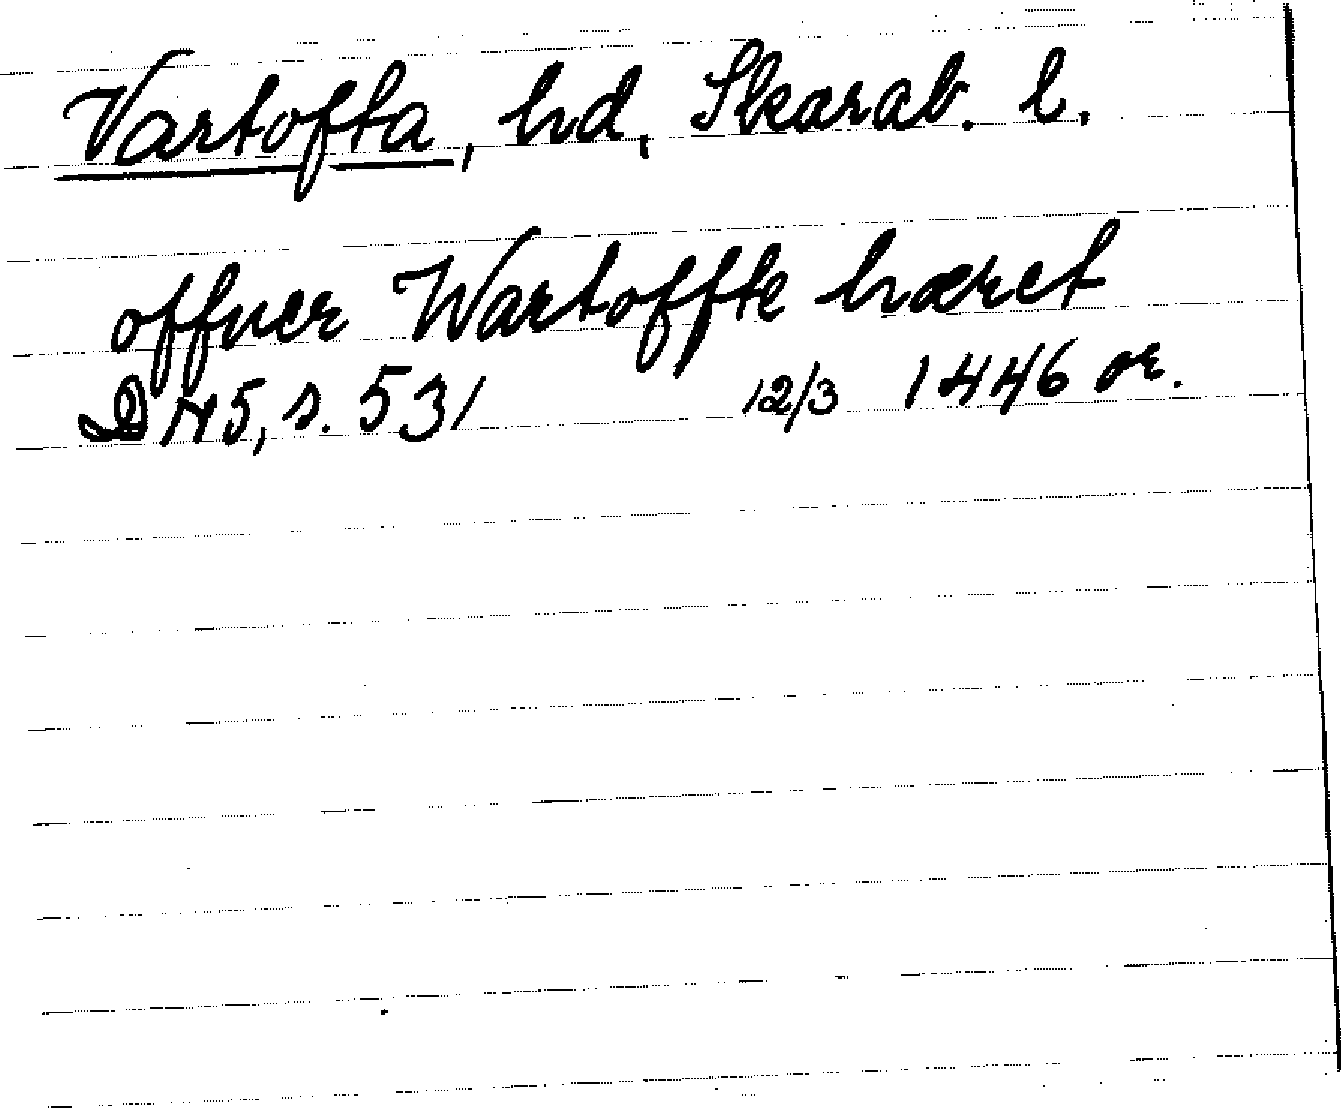 Vartofta, hd, Skarab. l.
offuer Wartoffte hæret
DN 5, s. 531 12/3 1446 or.